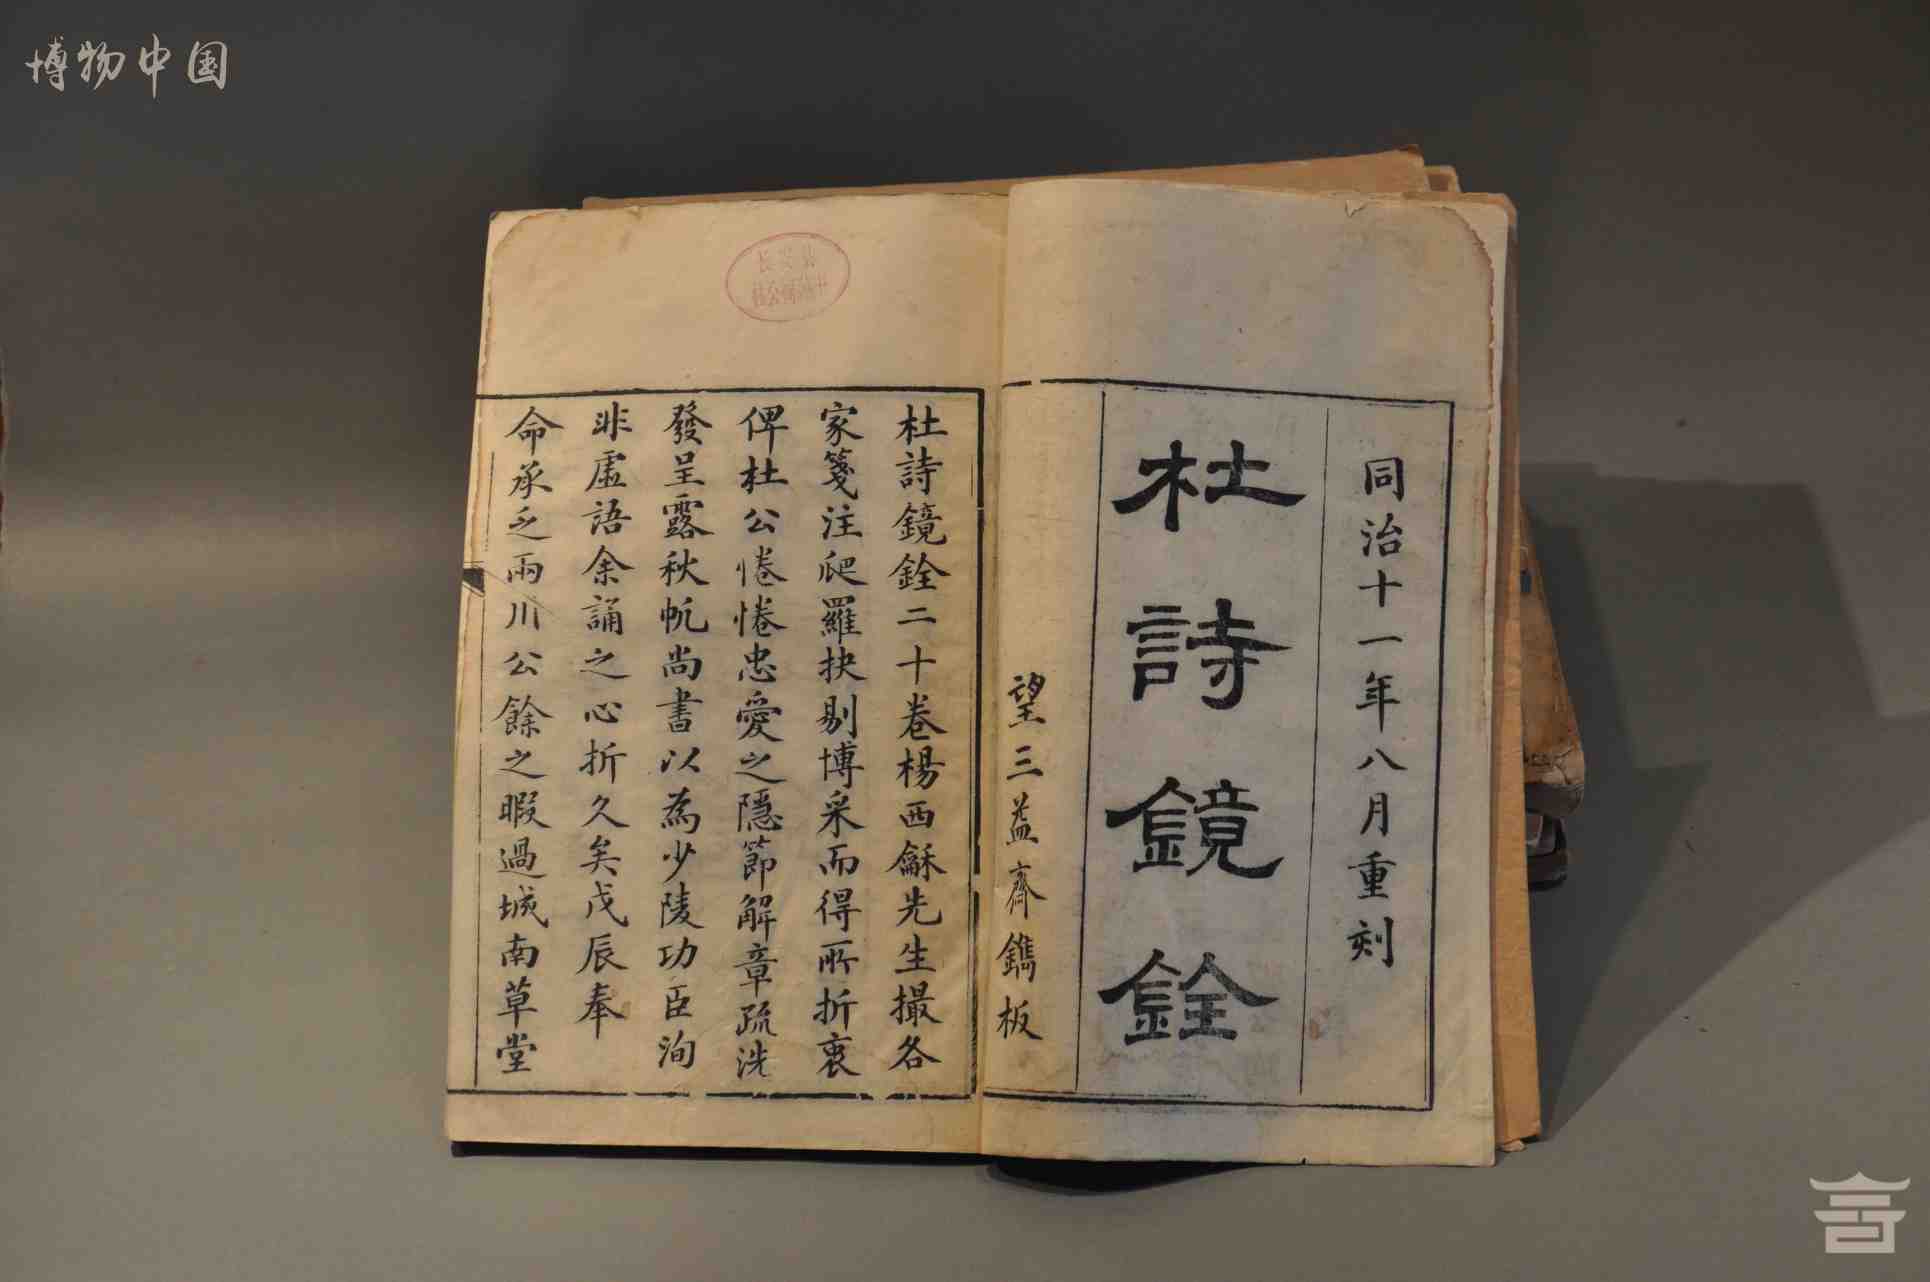 博物中国
同治十一年八月重刻
杜詩鏡銓
望三益齋鐫板
杜詩鏡銓二十卷楊西龢先生撮各
家箋注爬羅抉剔博采而得所折衷
俾杜公惓惓忠愛之隱節解章疏洗
發呈露秋帆尚書以為少陵功臣洵
非虛語余誦之心折久矣戊辰奉
命承乏兩川公餘之暇過城南草堂
长安县